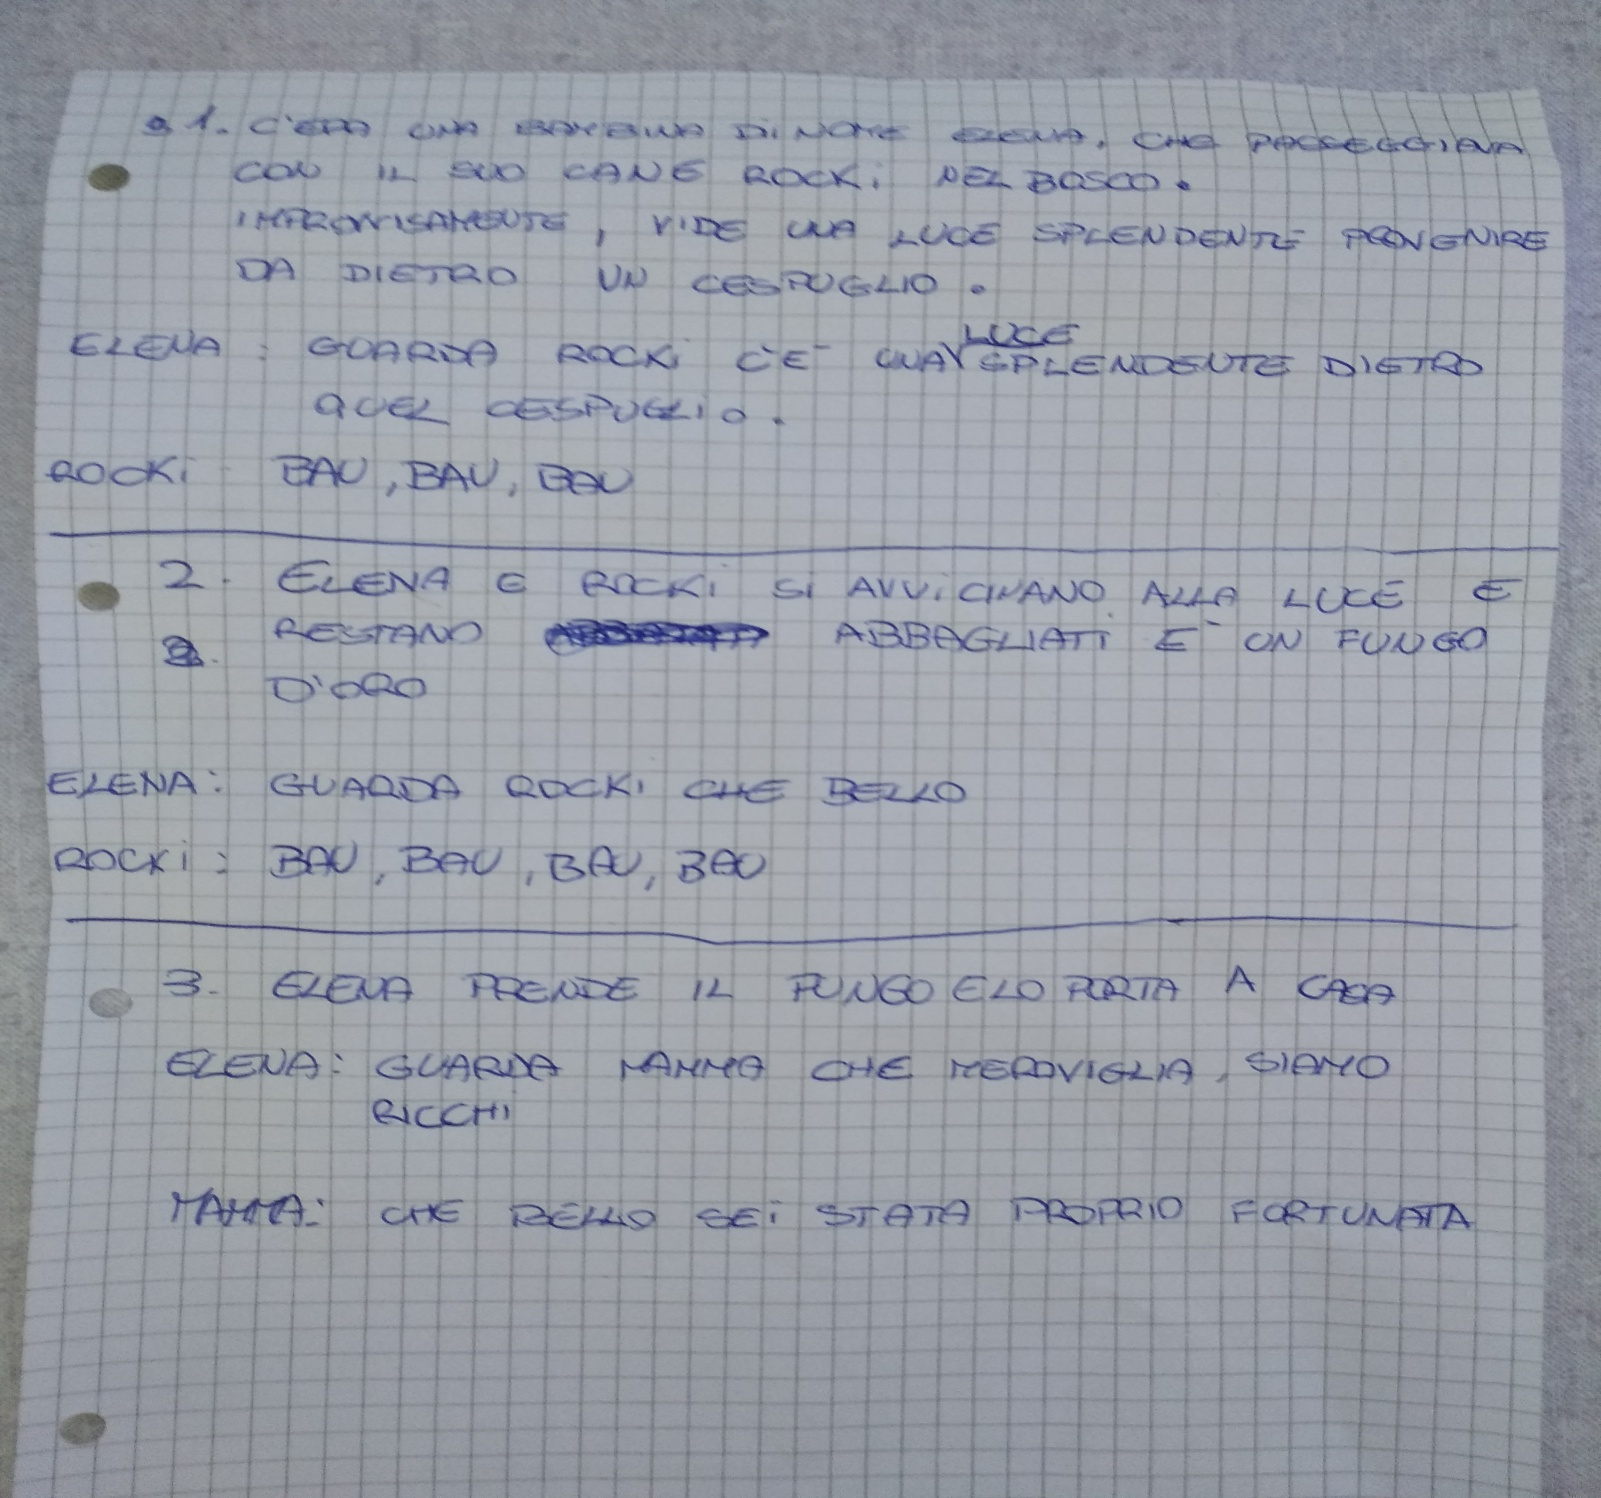 1. C'ERA UNA BAMBINA DI NOME ELENA, CHE PASSEGGIAVA
CON IL SUO CANE ROCKI NEL BOSCO.
IMPROVVISAMENTE, VIDE UNA LUCE SPLENDENTE PROVENIRE
DA DIETRO UN CESPUGLIO.
ELENA: GUARDA ROCKI C'È UNA LUCE SPLENDENTE DIETRO
QUEL CESPUGLIO.
ROCKI BAU, BAU, BAU
2. ELENA E ROCKI SI AVVICINANO ALLA LUCE E
RESTANO ABBAGLIATI È UN FUNGO
D'ORO
ELENA: GUARDA ROCKI CHE BELLO
ROCKI: BAU, BAU, BAU, BAU
3. ELENA PRENDE IL FUNGO E LO PORTA A CASA
ELENA: GUARDA MAMMA CHE MERAVIGLIA, SIAMO
RICCHI
MAMMA: CHE BELLO SEI STATA PROPRIO FORTUNATA